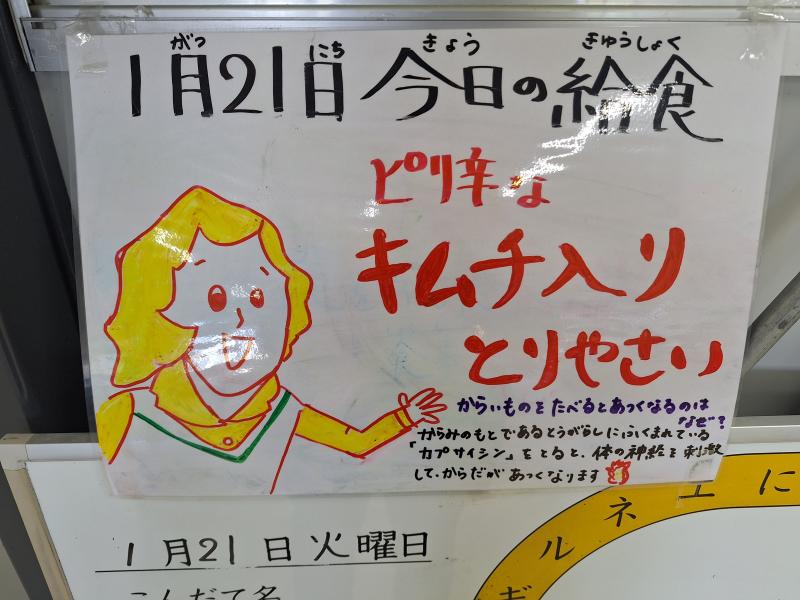 がつ にち きょう きゅうしょく
1月21日 今日の給食
ピリ辛な
キムチ入り
とりやさい
からいものをたべるとあつくなるのは
なぜ?
からみのもとであるとうがらしにふくまれている
「カプサイシン」をとると、体の神経を刺激
して、からだがあつくなります
1月21日火曜日
こんだて名
ギルネエに